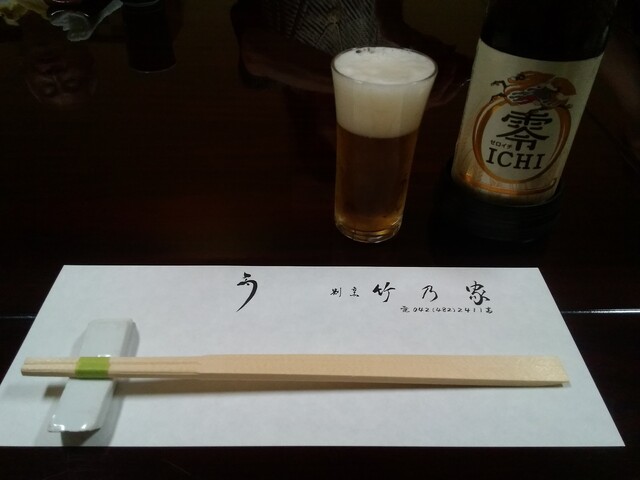 零
ゼロイチ
ICHI
う
割烹 竹乃家
☎ 042(482)2411